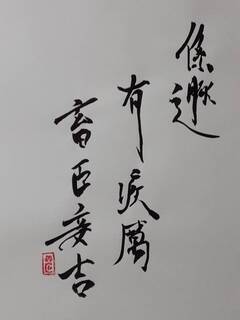 係遯
有疾厲
畜臣妾吉